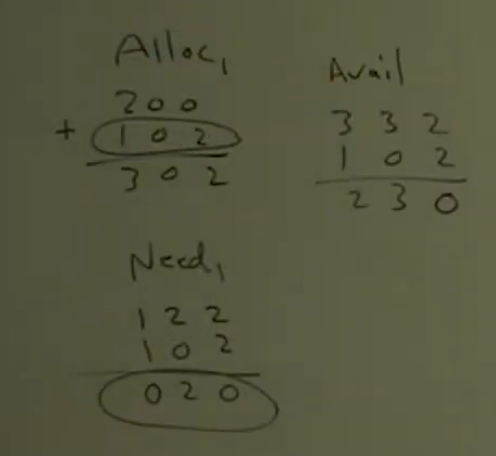 Alloc1
2 0 0
+ 1 0 2
3 0 2
Avail
3 3 2
1 0 2
2 3 0
Need1
1 2 2
1 0 2
0 2 0